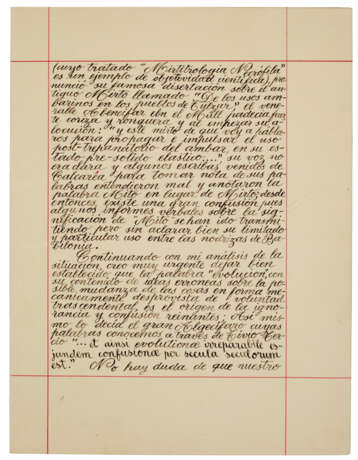 (cuyo tratado "Mirtitrología Mirófila"
es un ejemplo de objetividad científica), pro-
nunció su famosa disertación sobre el an-
tiguo Mirto llamado "De los usos am-
barinos en los pueblos de
el vene-
rable Abenofar ibn el Mrall (padecía fuer-
te coreza y ronquera) y al empezar su a-
locución: "y este mirto de que voy a habla-
ros para propagar e impulsar el uso
post-trapantollo del ámbar en su es-
tado pre-sólido elástico..." su voz no
era clara y algunos escribas venidos de
Calcárea para tomar nota de sus pa-
labras entendieron mal y anotaron la
palabra Mito en lugar de Mirto; desde
entonces, existe una gran confusión pues
algunos informes verbales sobre la sig-
nificación de Mito se han ido transmi-
tiendo pero sin aclarar bien su limitado
y particular uso entre las nodrizas de Ba-
bilonia.
Continuando con mi análisis de la
situación, creo muy urgente dejar bien
establecido que la palabra "evolución", con
su contenido de ideas erróneas sobre la po-
sible mudanza de las cosas en forma me-
cánicamente desprovista de voluntad
trascendental, es el origen de la igno-
rancia y confusión reinantes. Así mis-
mo lo decía el gran Algecífaro cuyas
palabras conocemos a través de Tivio Ter-
cio "...et ainsi evolutione irreparabile es-
jundem confusionae per secula seculorum
est." No hay duda de que nuestro